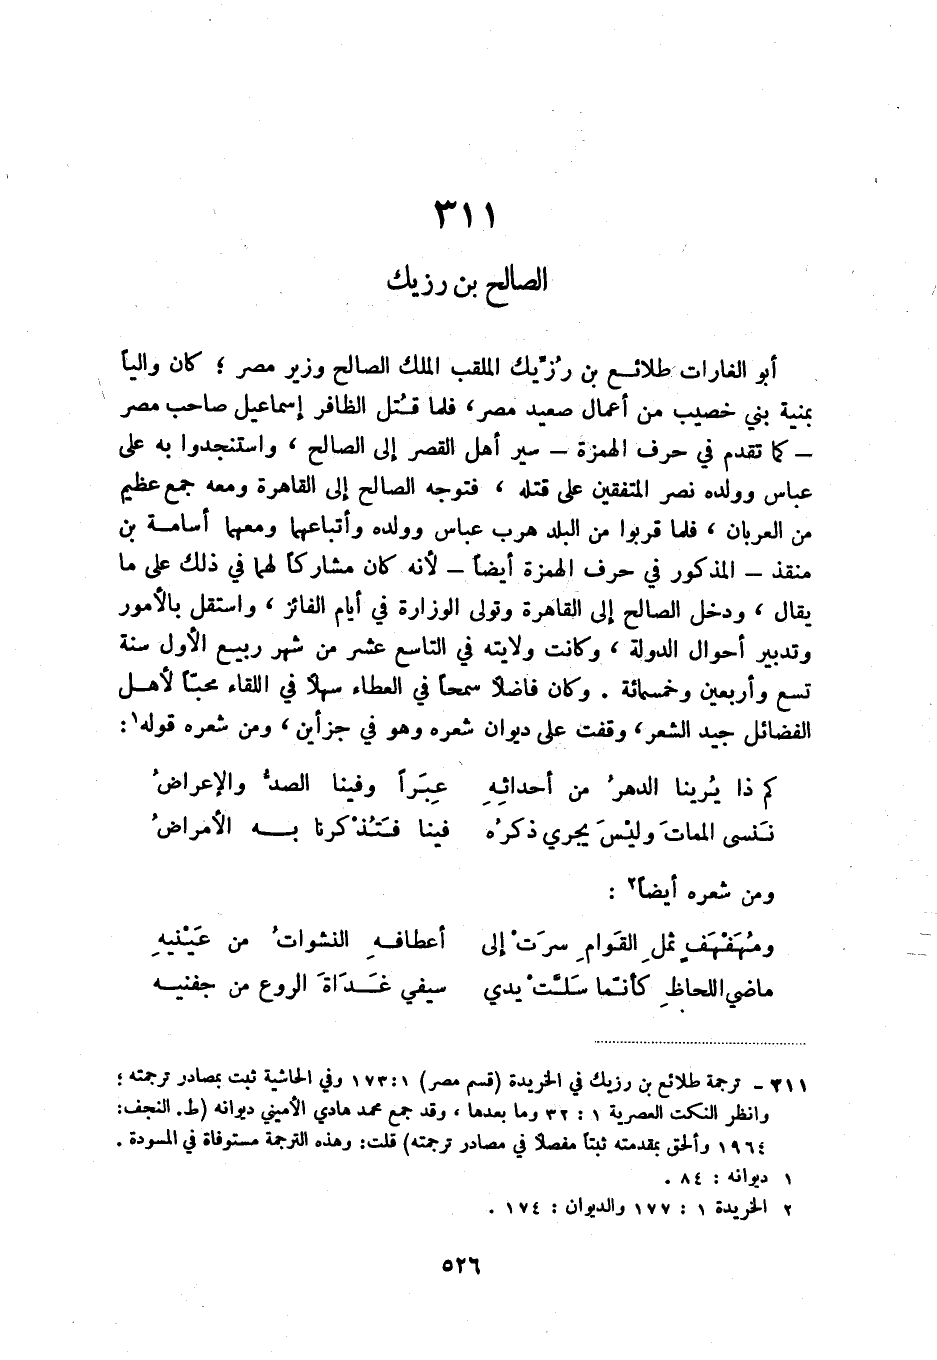 ٣١١
الصالح بن رزيك
أبو الغارات طلائع بن رُزّيك الملقب الملك الصالح وزير مصر ؛ كان والياً
بمنية بني خصيب من أعمال صعيد مصر، فلما قُتل الظافر إسماعيل صاحب مصر
– كما تقدم في حرف الهمزة – سير أهل القصر إلى الصالح ، واستنجدوا به على
عباس وولده نصر المتفقين على قتله ، فتوجه الصالح إلى القاهرة ومعه جمع عظيم
من العربان ، فلما قربوا من البلد هرب عباس وولده وأتباعهما ومعهما أسامة بن
منقذ – المذكور في حرف الهمزة أيضاً – لأنه كان مشاركاً لهما في ذلك على ما
يقال ، ودخل الصالح إلى القاهرة وتولى الوزارة في أيام الفائز ، واستقل بالأمور
وتدبير أحوال الدولة ، وكانت ولايته في التاسع عشر من شهر ربيع الأول سنة
تسع وأربعين وخمسمائة . وكان فاضلاً سمحاً في العطاء سهلاً في اللقاء محبّاً لأهل
الفضائل جيد الشعر، وقفت على ديوان شعره وهو في جزأين ، ومن شعره قوله١ :
كم ذا يُرينا الدهرُ من أحداثِهِ عِبَراً وفينا الصدُّ والإعراضُ
نَنسى المماتَ وليْسَ يجري ذكرُه فينا فتُذْكرنا به الأمراضُ
ومن شعره أيضاً٢ :
ومُهَفْهَفٍ ثمِلِ القَوامِ سرَتْ إلى أعطافهِ النشواتُ من عَيْنيهِ
ماضي اللحاظِ كأنّما سَلَّتْ يدي سيفي غَدَاةَ الروعِ من جفنيه
٣١١ – ترجمة طلائع بن رزيك في الخريدة (قسم مصر) ١ : ١٧٣ وفي الحاشية ثبت بمصادر ترجمته ؛
وانظر النكت العصرية ١ : ٣٢ وما بعدها ، وقد جمع محمد هادي الأميني ديوانه (ط. النجف:
١٩٦٤ وألحق بمقدمته ثبتاً مفصلاً في مصادر ترجمته) قلت: وهذه الترجمة مستوفاة في المسودة .
١ ديوانه : ٨٤ .
٢ الخريدة ١ : ١٧٧ والديوان : ١٧٤ .
٥٢٦